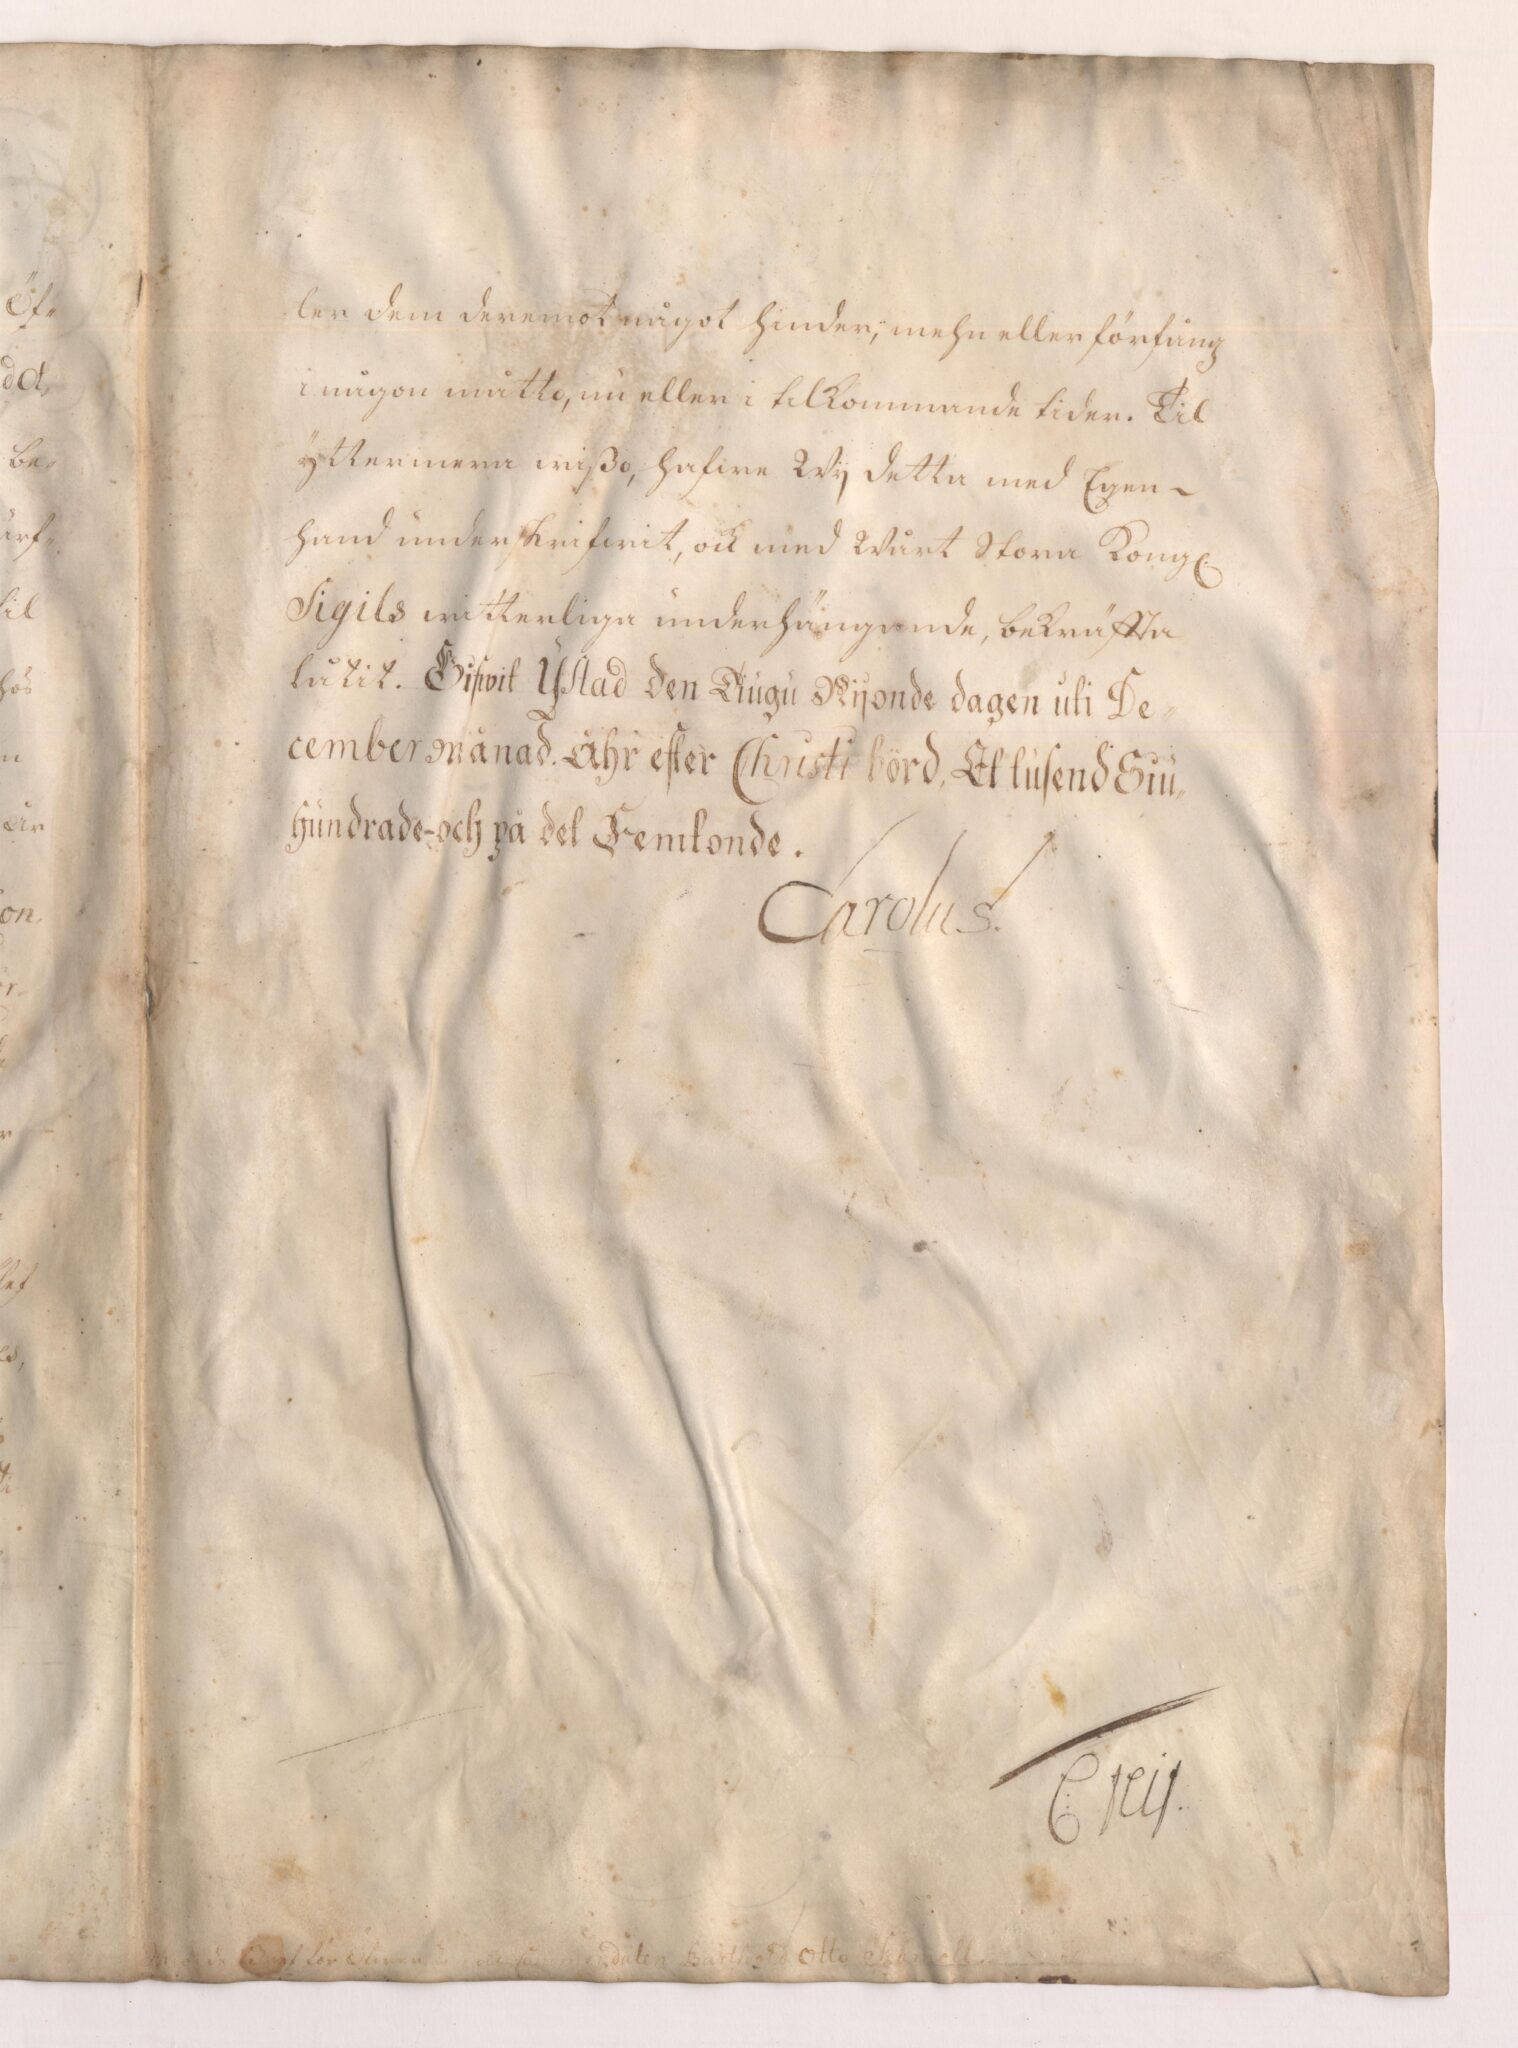 ler dem deremot något hinder, mehn eller förfång
i någon måtto, nu eller i tilkommande tider. Til
yttermera wißo, hafwe Wij detta med Egen-
hand underskrifwit, och med Wårt Stora Kongl.
Sigils witterliga underhängande, bekräffta
låtit. Gifwit Ystad den Tiugu Nijonde dagen uti De-
cember månad. Åhr efter Christi börd, Et tusend Siu-
hundrade- och på det Femtonde.
Carolus.
Öf-
da,
be-
til
hos
år
on,
er